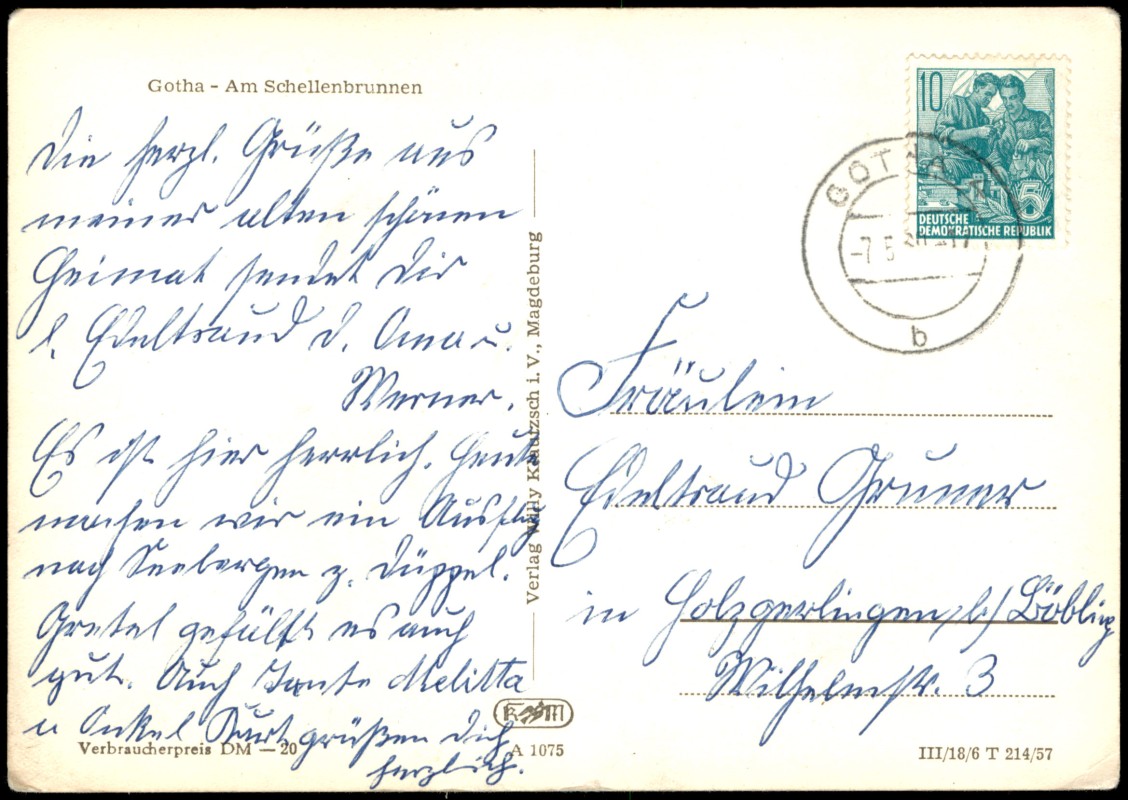 Gotha – Am Schellenbrunnen
Die herzl. Grüße aus
meiner alten schönen
Heimat sendet Dir
l. Edeltraud d. Oma u.
Werner.
Es ist hier herrlich. Heute
machen wir ein Ausflug
nach Seebergen z. Düppel.
Gretel gefällt es auch
gut. Auch Tante Melitta
u Onkel Kurt grüßen Dich
herzlich.
Verbraucherpreis DM —20
A 1075
III/18/6 T 214/57
Verlag Willy Klautzsch i. V., Magdeburg
10
DEUTSCHE
DEMOKRATISCHE REPUBLIK
5
GOTHA
-7.5.
b
Fräulein
Edeltraud Gruner
in Holzgerlingen b/ Böbling
Wilhelmstr. 3